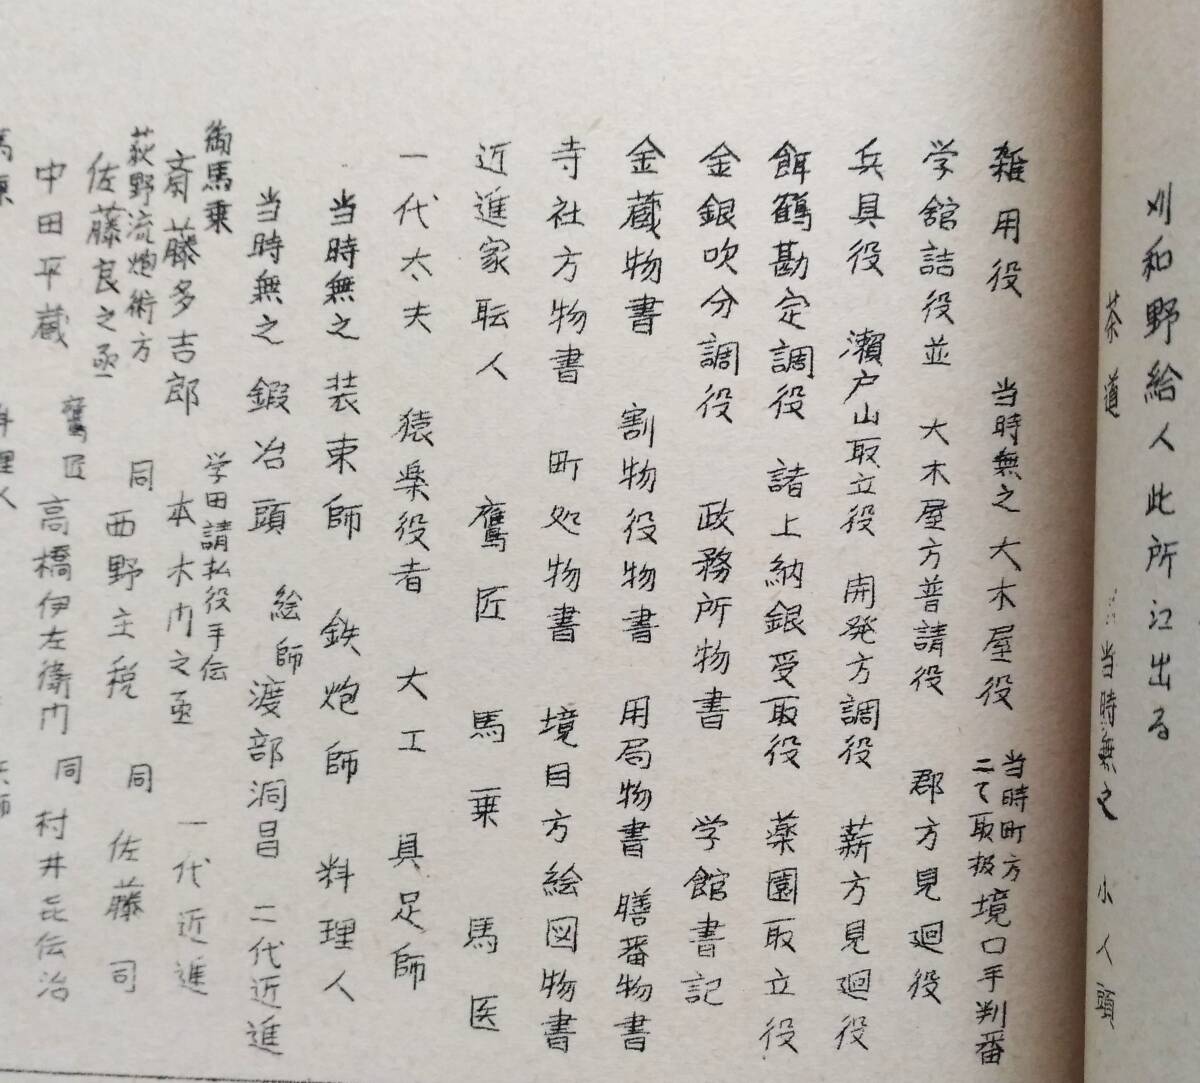 刈和野給人此所江出る
茶道 当時無之 小人頭
雑用役 当時無之 大木屋役 当時町方ニて取扱 境口手判番
学舘詰役並 大木屋方普請役 郡方見廻役
兵具役 瀬戸山取立役 開発方調役 薪方見廻役
餌鶴勘定調役 諸上納銀受取役 薬園取立役
金銀吹分調役 政務所物書 学館書記
金蔵物書 割物役物書 用局物書 膳番物書
寺社方物書 町処物書 境目方絵図物書
近進家耺人 鷹匠 馬乗 馬医
一代太夫 猿楽役者 大工 具足師
当時無之 装束師 鉄炮師 料理人
当時無之 鍜冶頭 絵師 渡部洞昌 二代近進
御馬乗 斎藤多吉郎 学田請払役手伝 本木門之亟 一代近進
荻野流炮術方 佐藤良之亟 同 西野主税 同 佐藤司
中田平蔵 鷹匠 高橋伊左衛門 同 村井㐂伝治
料理人